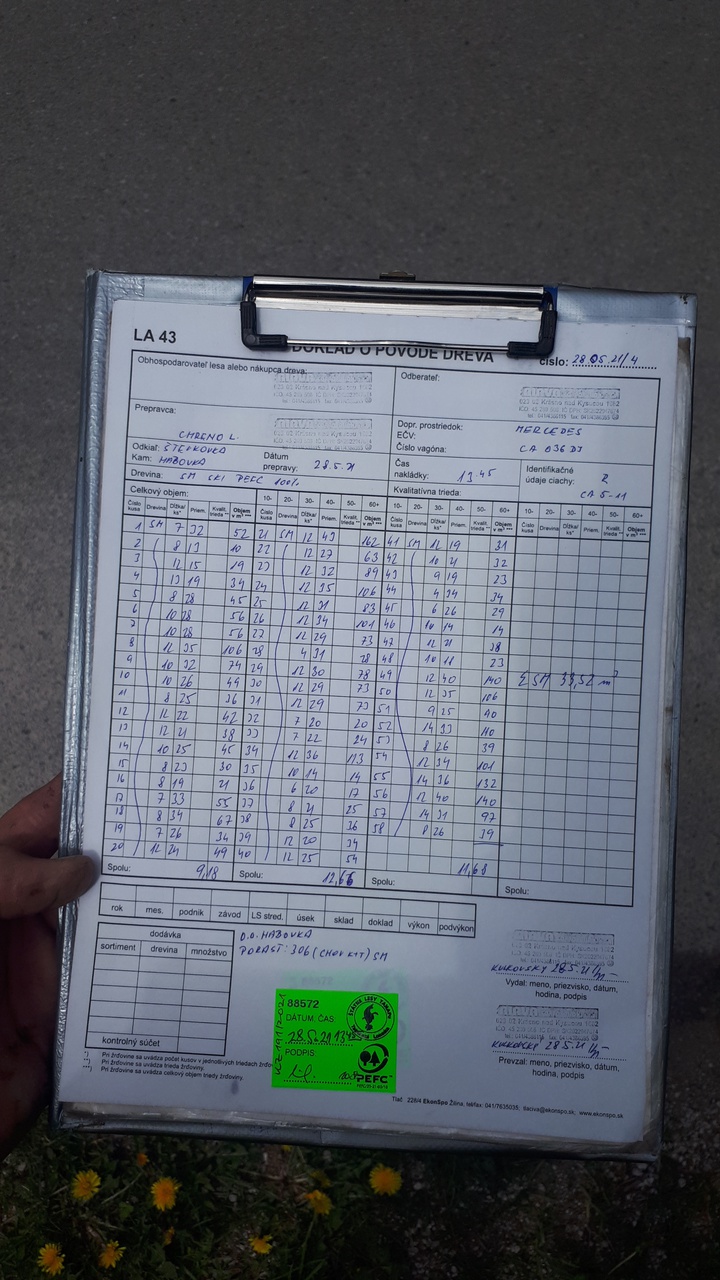 LA 43
DOKLAD O PÔVODE DREVA
číslo: 28.05.21/4
Obhospodarovateľ lesa alebo nákupca dreva:
Odberateľ:
Prepravca:
CHRENO L.
Dopr. prostriedok: MERCEDES
EČV:
Číslo vagóna: CA 036 DJ
Odkiaľ: ŠTEFKOVKA
Kam: HABOVKA
Dátum prepravy: 28.5.21
Čas nakládky: 13.45
Identifikačné údaje ciachy: R
CA 5-11
Drevina: SM SKI PEFC 100%
Celkový objem:
Kvalitatívna trieda:
10- 20- 30- 40- 50- 60+ 10- 20- 30- 40- 50- 60+ 10- 20- 30- 40- 50- 60+
Číslo kusa Drevina Dĺžka/ks* Priem. Kvalit. trieda** Objem v m³ ***
1 SM 7 32 52 21 SM 12 43 162 41 SM 12 19 31
2 8 13 10 22 12 27 63 42 10 21 32
3 12 15 19 23 12 32 89 43 9 19 23
4 13 19 34 24 12 35 106 44 4 34 34
5 8 28 45 25 12 31 83 45 6 26 29
6 10 28 56 26 12 34 101 46 10 14 14
7 10 28 56 27 12 29 73 47 12 21 38
8 12 35 106 28 4 31 28 48 10 18 23
9 10 32 74 29 12 30 78 49 12 40 140
10 10 26 49 30 12 29 73 50 12 35 106
Σ SM 33,52 m³
11 8 25 36 31 12 29 73 51 9 25 40
12 12 22 42 32 7 20 20 52 14 33 110
13 12 21 38 33 7 22 24 53 8 26 39
14 10 25 45 34 12 36 113 54 12 34 101
15 8 23 30 35 10 14 14 55 14 36 132
16 8 19 21 36 6 20 17 56 12 40 140
17 7 33 55 37 8 21 25 57 14 31 97
18 8 34 67 38 8 25 36 58 8 26 39
19 7 26 34 39 12 20 34
20 12 24 49 40 12 25 54
Spolu: 9,18 Spolu: 12,66 Spolu: 11,68 Spolu:
rok mes. podnik závod LS stred. úsek sklad doklad výkon podvýkon
dodávka
sortiment drevina množstvo
kontrolný súčet
O.O. HABOVKA
PORAST: 306 (CHOVKYT) SM
88572
DÁTUM, ČAS
28.5.21 1345
PODPIS:
PEFC
Vydal: meno, priezvisko, dátum,
hodina, podpis
Prevzal: meno, priezvisko, dátum,
hodina, podpis
*) Pri žrďovine sa uvádza počet kusov v jednotlivých triedach žrďoviny.
**) Pri žrďovine sa uvádza trieda žrďoviny.
***) Pri žrďovine sa uvádza celkový objem triedy žrďoviny.
Tlač: 226/4 EkonSpo Žilina, tel/fax: 041/7635035; tlaciva@ekonspo.sk; www.ekonspo.sk